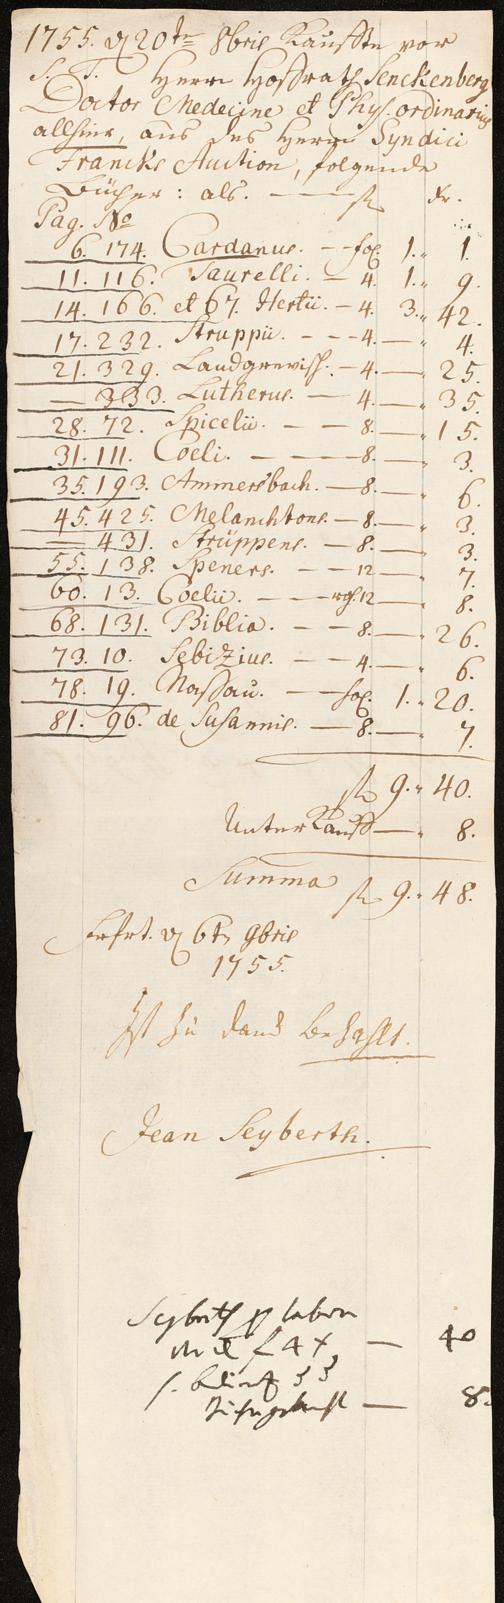 1755. d 20ten 8bris Kauffte vor
S. T. Herrn Hoffrath Senckenberg
Doctor Medecine et Phys. ordinarius
allhier, aus des Herrn Syndici
Francks Auction, folgende
Bücher: als. — fl Kr.
Pag. No
6. 174. Cardanus. — fol. 1. " 1.
11. 116. Taurelli. — 4. 1. " 9.
14. 166. et 67. Hertii. — 4. 3. " 42.
17. 232. Struppii. — 4. — " 4.
21. 329. Landgrevisch. — 4. — " 25.
— 333. Lutherus. — 4. — " 35.
28. 72. Spicelii. — 8. — " 15.
31. 111. Coeli. — 8. — " 3.
35. 193. Ammersbach. — 8. — " 6.
45. 425. Melanchtons. — 8. — " 3.
— 431. Struppens. — 8. — " 3.
55. 138. Speners. — 12 — " 7.
60. 13. Coelii. — 12 — " 8.
68. 131. Biblia. — 8. — " 26.
73. 10. Sebizius. — 4. — " 6.
78. 19. Nassau. — fol. 1. " 20.
81. 96. de Susannis. — 8. — " 7.
fl 9. " 40.
Unterkauff — " 8.
Summa fl 9. " 48.
Frfrt. d 6ten 9bris
1755.
Ist zu danck bezahlt.
Jean Seyberth.
Seyberth haben
— 40
— 8.